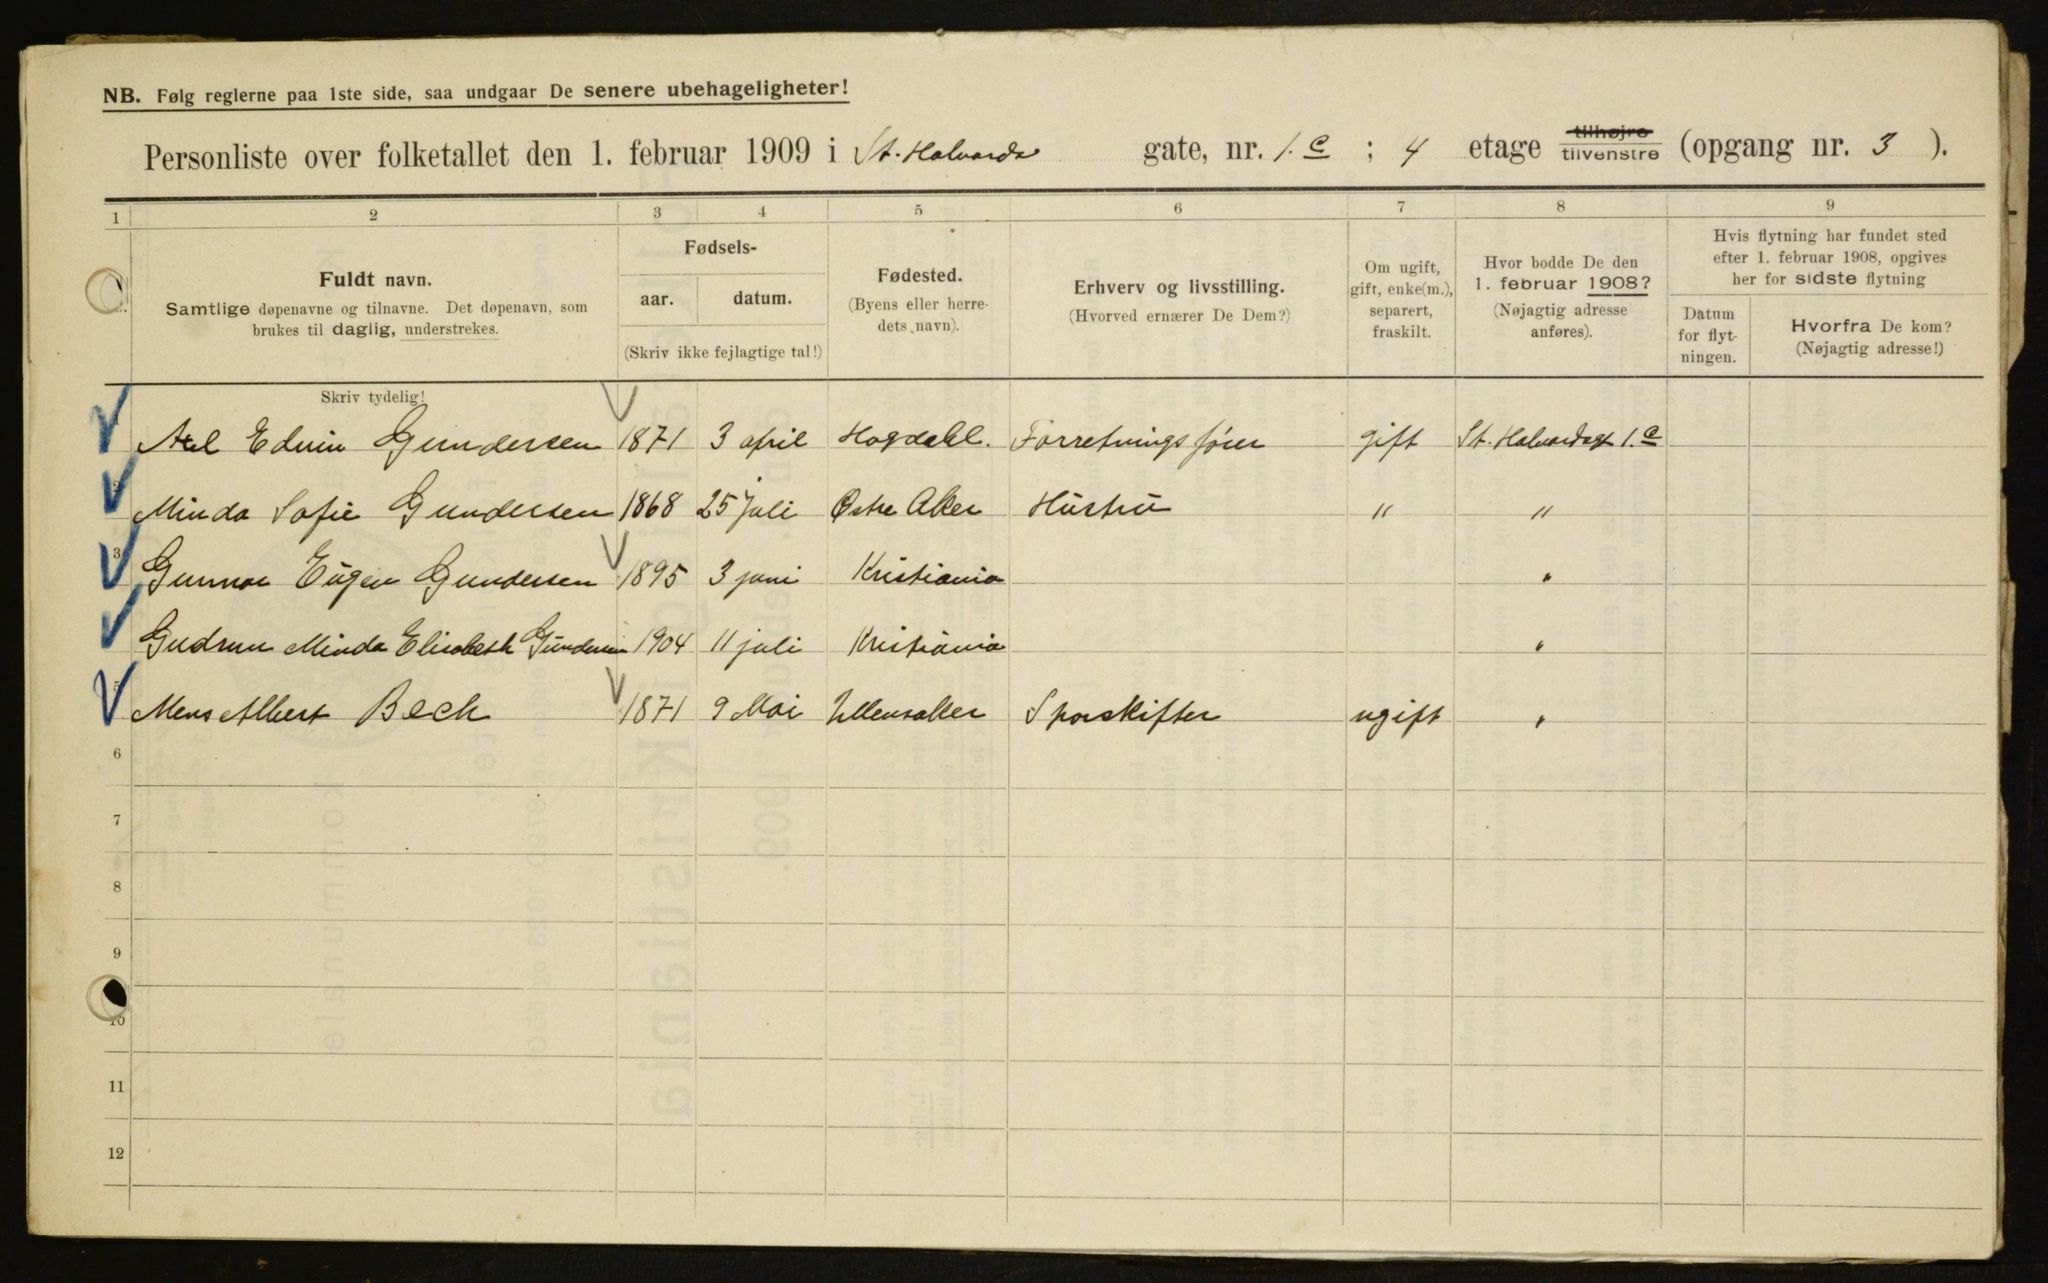 NB. Følg reglerne paa 1ste side, saa undgaar De senere ubehageligheter!
Personliste over folketallet den 1. februar 1909 i St. Halvards gate, nr. 1.c ; 4 etage tilhøjre tilvenstre (opgang nr. 3 ).
1 2 3 4 5 6 7 8 9
Fuldt navn.
Samtlige døpenavne og tilnavne. Det døpenavn, som
brukes til daglig, understrekes.
Fødsels-
aar. datum.
(Skriv ikke fejlagtige tal!)
Fødested.
(Byens eller herre-
dets navn).
Erhverv og livsstilling.
(Hvorved ernærer De Dem?)
Om ugift,
gift, enke(m.),
separert,
fraskilt.
Hvor bodde De den
1. februar 1908?
(Nøjagtig adresse
anføres).
Hvis flytning har fundet sted
efter 1. februar 1908, opgives
her for sidste flytning
Datum
for flyt-
ningen.
Hvorfra De kom?
(Nøjagtig adresse!)
Skriv tydelig!
Axel Edvin Gundersen 1871 3 april Hogdahl. Forretningsfører gift St. Halvardsgt 1.c
2 Minda Sofie Gundersen 1868 25 juli Østre Aker Hustru " "
3 Gunnar Eugen Gundersen 1895 3 juni Kristiania "
Gudrun Minda Elisabeth Gundersen 1904 11 juli Kristiania "
5 Mens Albert Bech 1871 9 Mai Ullensaker Sporskifter ugift "
6
7
8
9
10
11
12